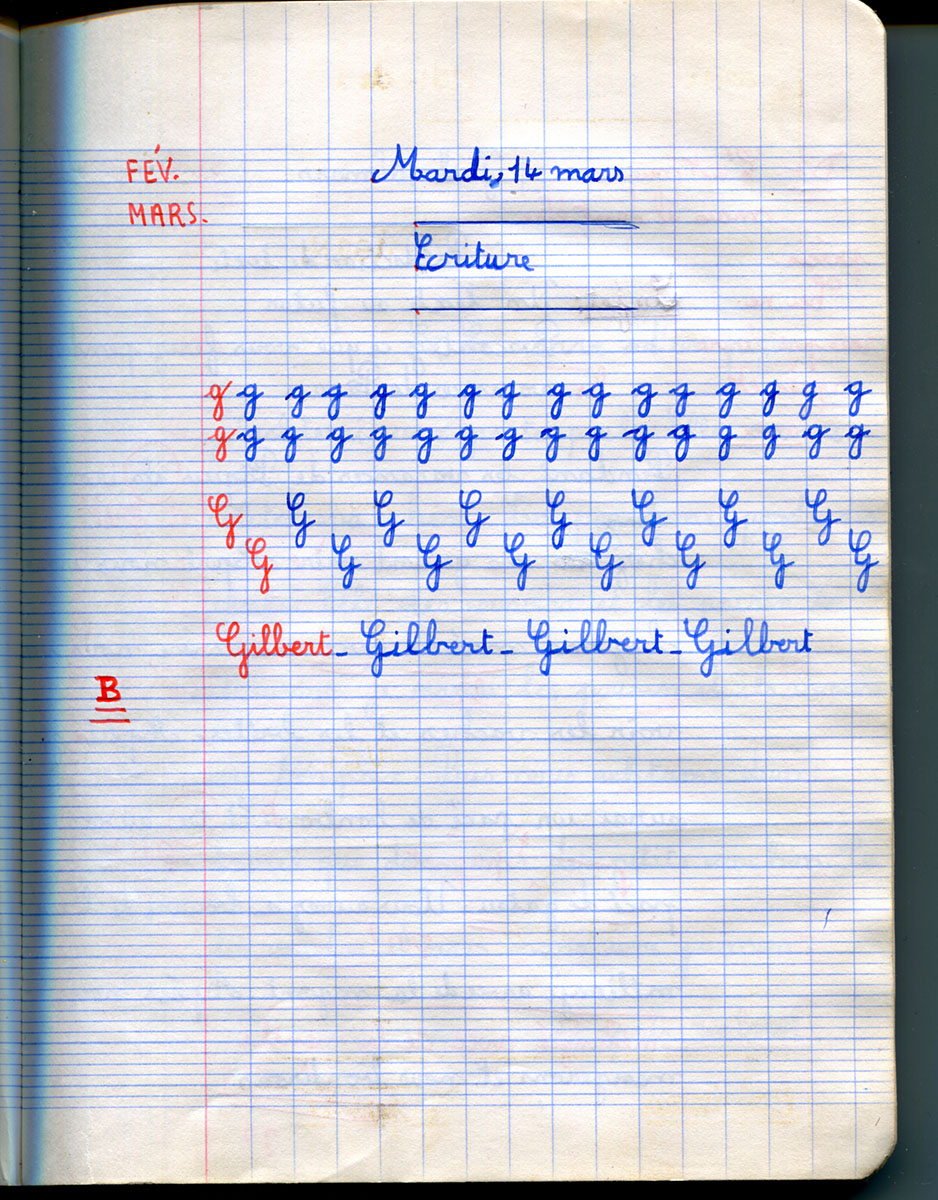 FÉV.
Mardi, 14 mars
MARS.
Ecriture
g g g g g g g g g g g g g g g g
g g g g g g g g g g g g g g g g
G G G G G G G G
G G G G G G G G
Gilbert - Gilbert - Gilbert - Gilbert
B